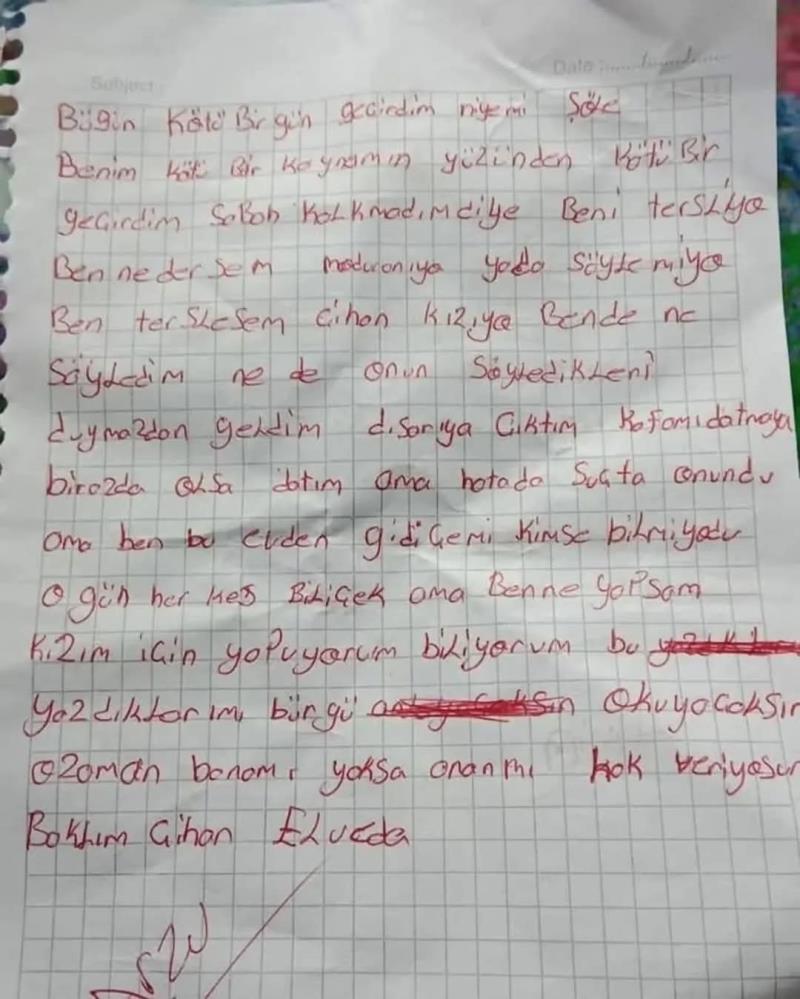 Subject:
Date :
Bügün Kötü Bir gün gecirdim niyemi Şöle
Benim köti Bir kaynamın yüzünden Kötü Bir
gecirdim SaBah KaLkmadım diye Beni tersLiye
Ben ne dersem madıraniya yada Söylemiye
Ben tersLesem Cihan Kızıya Bende ne
SöyLedim ne de onun SöyledikLeni
duymazdan geLdim dısarıya Cıktım Kafamı datmaya
birazda oLsa datım ama hatada Sucta onundu
ama ben bu Evden gidiCemi Kimse biLmiyodu
O gün her kes BiLiCek ama Benne YaPsam
Kızım icin yaPuyorum biLiyorum bu
Yazdıklarımı bürgü Okuyacaksın
Ozaman banamı yoksa ananmı hak veriyosun
BakLım Cihan ELveda